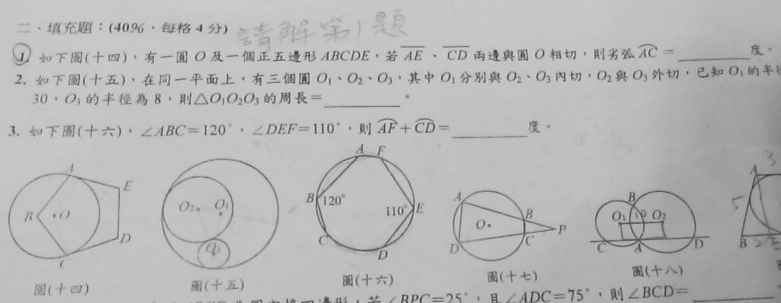 二、填充題：(40%，每格4分) 請解第1題
1. 如下圖(十四)，有一圓O及一個正五邊形ABCDE，若AE、CD兩邊與圓O相切，則劣弧AC=________度。
2. 如下圖(十五)，在同一平面上，有三個圓O₁、O₂、O₃，其中O₁分別與O₂、O₃內切，O₂與O₃外切，已知O₁的半
30，O₃的半徑為8，則△O₁O₂O₃的周長=________。
3. 如下圖(十六)，∠ABC=120°，∠DEF=110°，則AF+CD=________度。
A E B O D C
O₂ O₁
A F B 120° 110° E C D
A B O P D C
B O₁ 10 O₂ A D
3 A 5 B
圖(十四) 圖(十五) 圖(十六) 圖(十七) 圖(十八)
∠BPC=25°，且∠ADC=75°，則∠BCD=